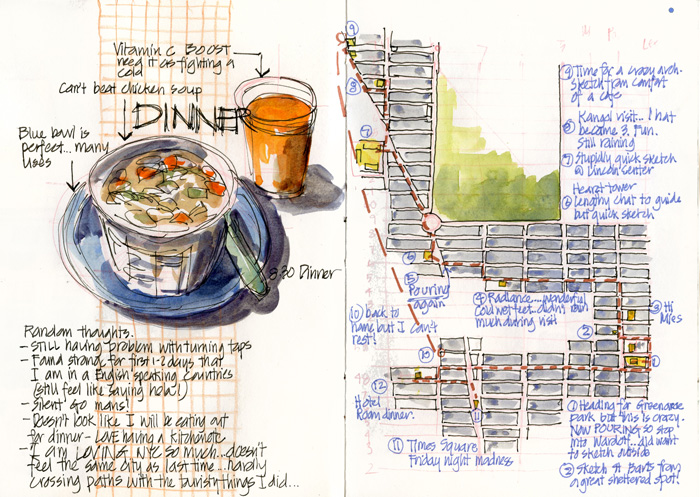 Vitamin C BOOST
need it as fighting a
cold
Can't beat chicken soup
DINNER
Blue bowl is
perfect... many
uses
8.30 Dinner
Random thoughts.
- Still having problem with turning taps
- Found strange for first 1-2 days that
I am in a English speaking countries
(still feel like saying hola!)
- Silent Go mans!
- Doesn't look like I will be eating out
for dinner - LOVE having a kitchenette
- I am LOVING NYC so much... doesn't
feel the same city as last time... hardly
crossing paths with the touristy things I did...
9
8
7
6
5
Pouring
again
4 Radiance.... wonderful
Cold wet feet.. didn't rain
much during visit
3 Hi
Miles
2
1
10 back to
home but I can't
rest!
10
12
Hotel
Room dinner.
11
11 Times Square
Friday night madness
9 Time for a crazy arch.
sketch from comfort
of a cafe
8 Kangol visit... 1 hat
became 3. Fun.
Still raining
7 Stupidly quick sketch
@ Lincoln Center
Hearst tower
6 Lengthy chat to guide
but quick sketch
1 Heading for Greenacre
park but this is crazy.
NOW POURING so stop
into Waldorf... did want
to sketch outside
2 Sketch St Barts from
a great sheltered spot!